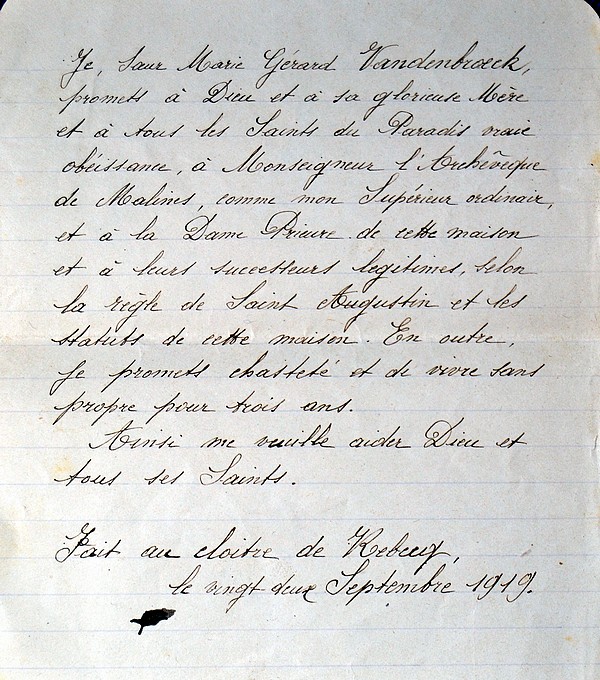 Je, Sœur Marie Gérard Vandenbroeck,
promets à Dieu et à sa glorieuse Mère
et à tous les Saints du Paradis vraie
obéissance, à Monseigneur l'Archevêque
de Malines, comme mon Supérieur ordinair,
et à la Dame Prieure de cette maison
et à leurs successeurs legitimes, selon
la règle de Saint Augustin et les
statuts de cette maison. En outre,
je promets chasteté et de vivre sans
propre pour trois ans.
Ainsi me veuille aider Dieu et
tous ses Saints.
Fait au cloitre de Rebecq,
le vingt deux Septembre 1919.